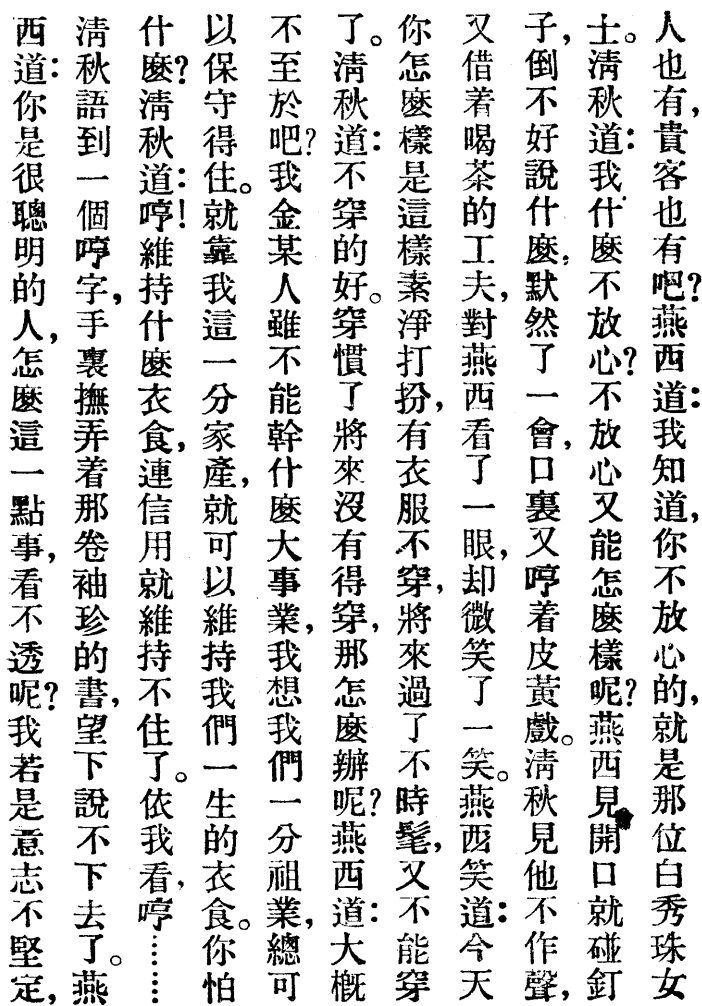 人也有,貴客也有吧?燕西道:我知道,你不放心的,就是那位白秀珠女
士。清秋道:我什麽不放心?不放心又能怎麽樣呢?燕西見開口就碰釘
子,倒不好說什麽,默然了一會,口裏又哼着皮黃戲。清秋見他不作聲,
又借着喝茶的工夫,對燕西看了一眼,却微笑了一笑。燕西笑道:今天
你怎麽樣是這樣素淨打扮,有衣服不穿,將來過了不時髦,又不能穿
了。清秋道:不穿的好。穿慣了將來沒有得穿,那怎麽辦呢?燕西道:大概
不至於吧?我金某人雖不能幹什麽大事業,我想我們一分祖業,總可
以保守得住。就靠我這一分家產,就可以維持我們一生的衣食。你怕
什麽?清秋道:哼!維持什麽衣食,連信用就維持不住了。依我看,哼……
清秋語到一個哼字,手裏撫弄着那卷袖珍的書,望下說不下去了。燕
西道:你是很聰明的人,怎麽這一點事,看不透呢?我若是意志不堅定,